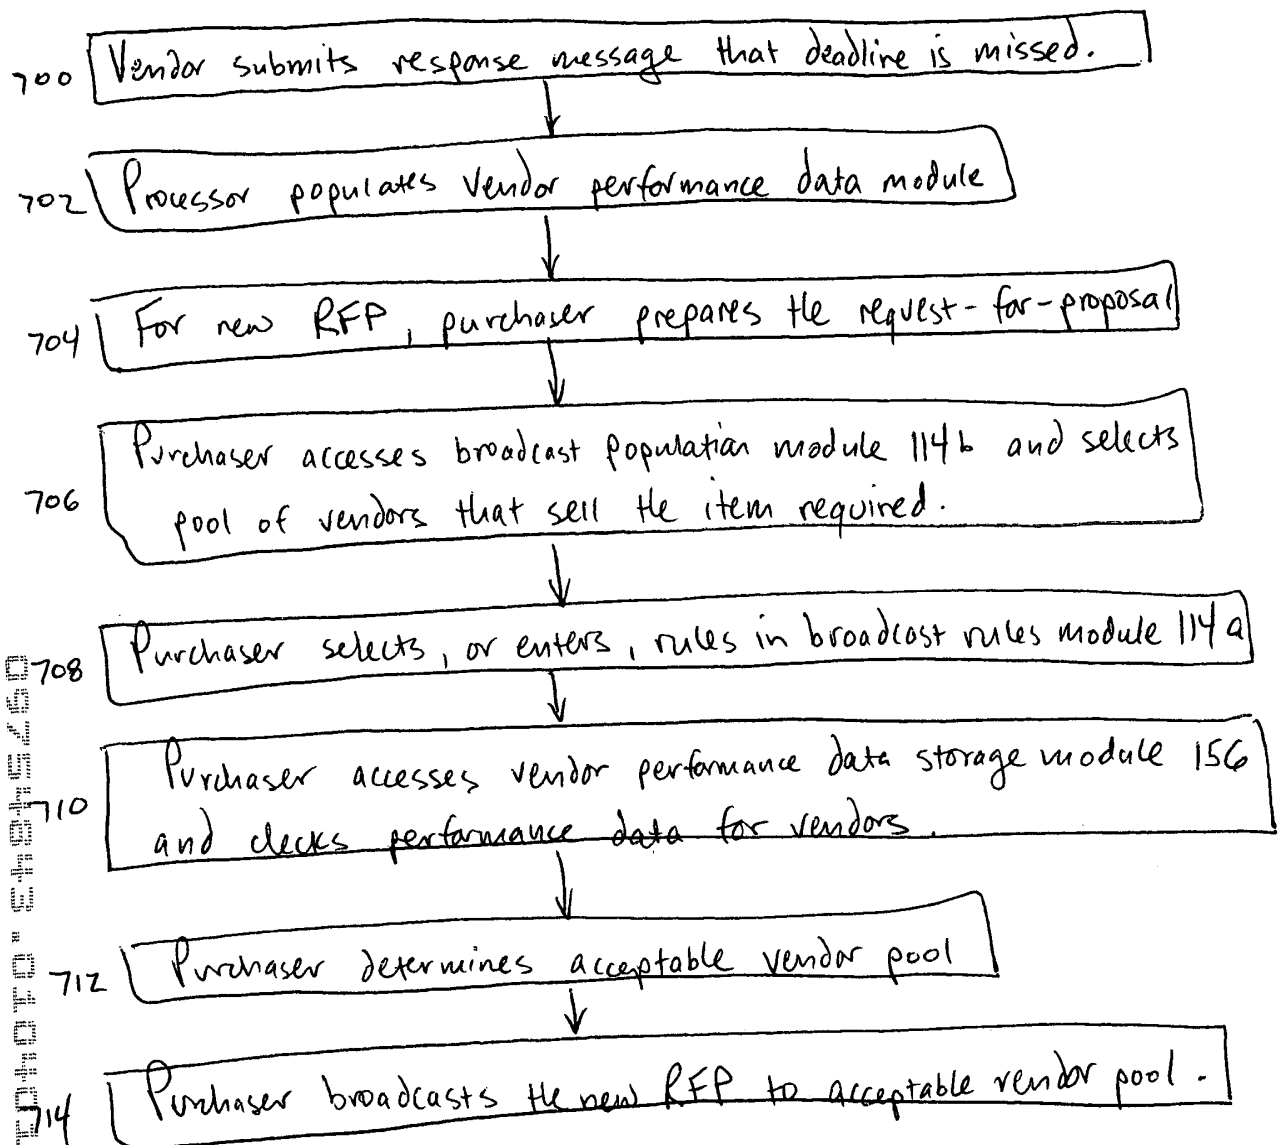 700 Vendor submits response message that deadline is missed.
702 Processor populates vendor performance data module
704 For new RFP, purchaser prepares the request-for-proposal
Purchaser accesses broadcast population module 114b and selects
706 pool of vendors that sell the item required.
708 Purchaser selects, or enters, rules in broadcast rules module 114a
Purchaser accesses vendor performance data storage module 156
710 and checks performance data for vendors.
712 Purchaser determines acceptable vendor pool
714 Purchaser broadcasts the new RFP to acceptable vendor pool.